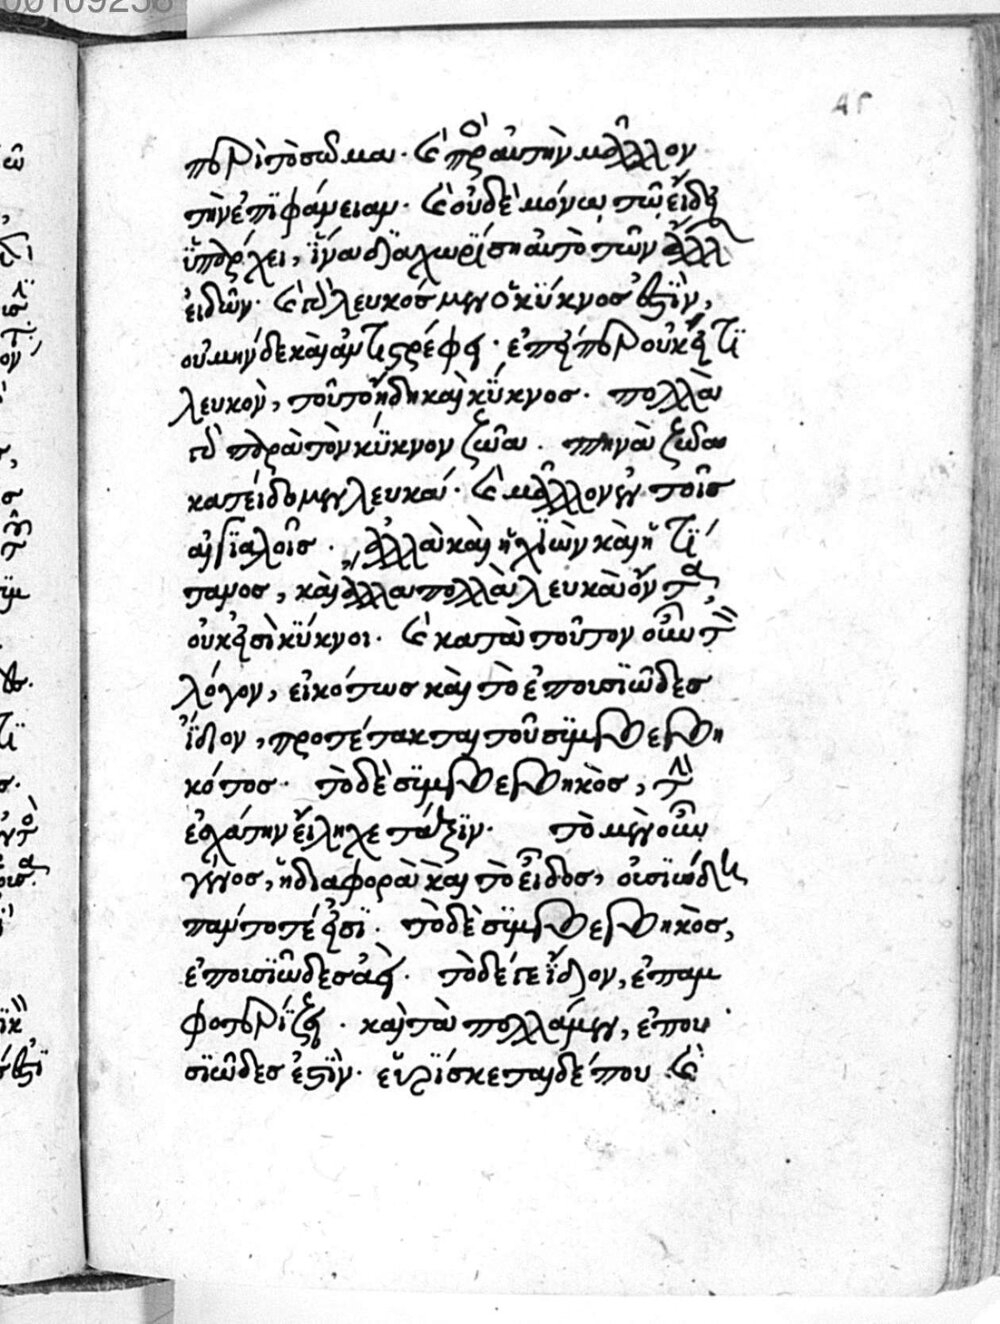 περὶ τὸ σῶμα. καὶ πρὸς αὐτὴν μᾶλλον
τὴν ἐπϊφάνειαν. καὶ οὐδὲ μόνω τῶ εἴδει
ὑπάρχει, ἵνα διαχωρίση αὐτὸ τῶν ἄλλων
εἰδῶν. καὶ τὸ λευκὸς μὲν ὁ κύκνος ἐστϊν,
οὐ μὴν δὲ καὶ ἀντιστρέφει. ἐπεὶ εἴπερ οὐκ εἴ τι
λευκὸν, τοῦτο ἤδη καὶ κύκνος. πολλὰ
τὰ παρὰ τὸν κύκνον ζῶα. πτηνὰ ζῶα
κατείδομεν λευκά. καὶ μᾶλλον ἐν τοῖς
αἰγϊαλοῖς. ἀλλὰ καὶ ἡ χϊὼν καὶ ἡ τί
τανος, καὶ ἄλλα πολλὰ λευκὰ ὄντα,
οὐκ εἰσὶ κύκνοι. καὶ κατὰ τοῦτον οὖν τὸν
λόγον, εἰκότως καὶ τὸ ἐπουσϊῶδες
ἴδιον, προτέτακται τοῦ συμβεβη
κότος. τὸ δὲ συμβεβηκὸς, τὴν
ἐσχάτην εἴληχε τάξϊν. τὸ μὲν οὖν
γένος, ἡ διαφορὰ καὶ τὸ εἶδος, οὐσϊώδη
πάντοτέ εἰσϊ. τὸ δὲ συμβεβηκὸς,
ἐπουσϊῶδες ἀεί. τὸ δέ γε ἴδιον, ἐπαμ
φοτερίζει. κατὰ πολλὰ μὲν, ἐπου
σϊῶδες ἐστϊν. εὑρίσκεται δέ που καὶ